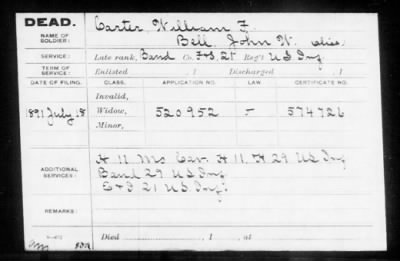 DEAD.
NAME OF SOLDIER: Carter, William F.
Bell, John W. alias
SERVICE: Late rank, Band Co. F&S, 21 Reg't U S Inf
TERM OF SERVICE: Enlisted , 1 Discharged , 1
DATE OF FILING. CLASS. APPLICATION NO. LAW CERTIFICATE NO.
Invalid,
1891 July 18 Widow, 520952 – 574726
Minor,
ADDITIONAL SERVICES: H 11 Mo Cav. H 11. H 29 US Inf
Band 29 US Inf
E & F 21 U S Inf.
REMARKS:
Died , 1 , at